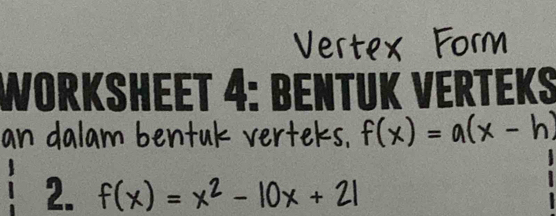 Vertex Form
WORKSHEET 4: BENTUK VERTEKS
an dalam bentuk verteks, f(x) = a(x - h)
2. f(x) = x² - 10x + 21